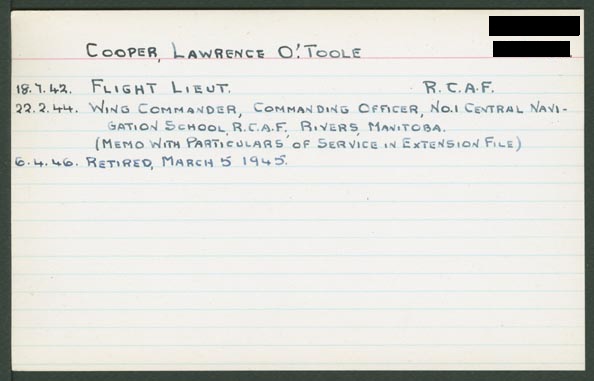 COOPER, LAWRENCE O'TOOLE
18.7.42. FLIGHT LIEUT. R.C.A.F.
22.2.44. WING COMMANDER, COMMANDING OFFICER, NO.1 CENTRAL NAVI-
GATION SCHOOL, R.C.A.F., RIVERS, MANITOBA.
(MEMO WITH PARTICULARS OF SERVICE IN EXTENSION FILE)
6.4.46. RETIRED, MARCH 5 1945.